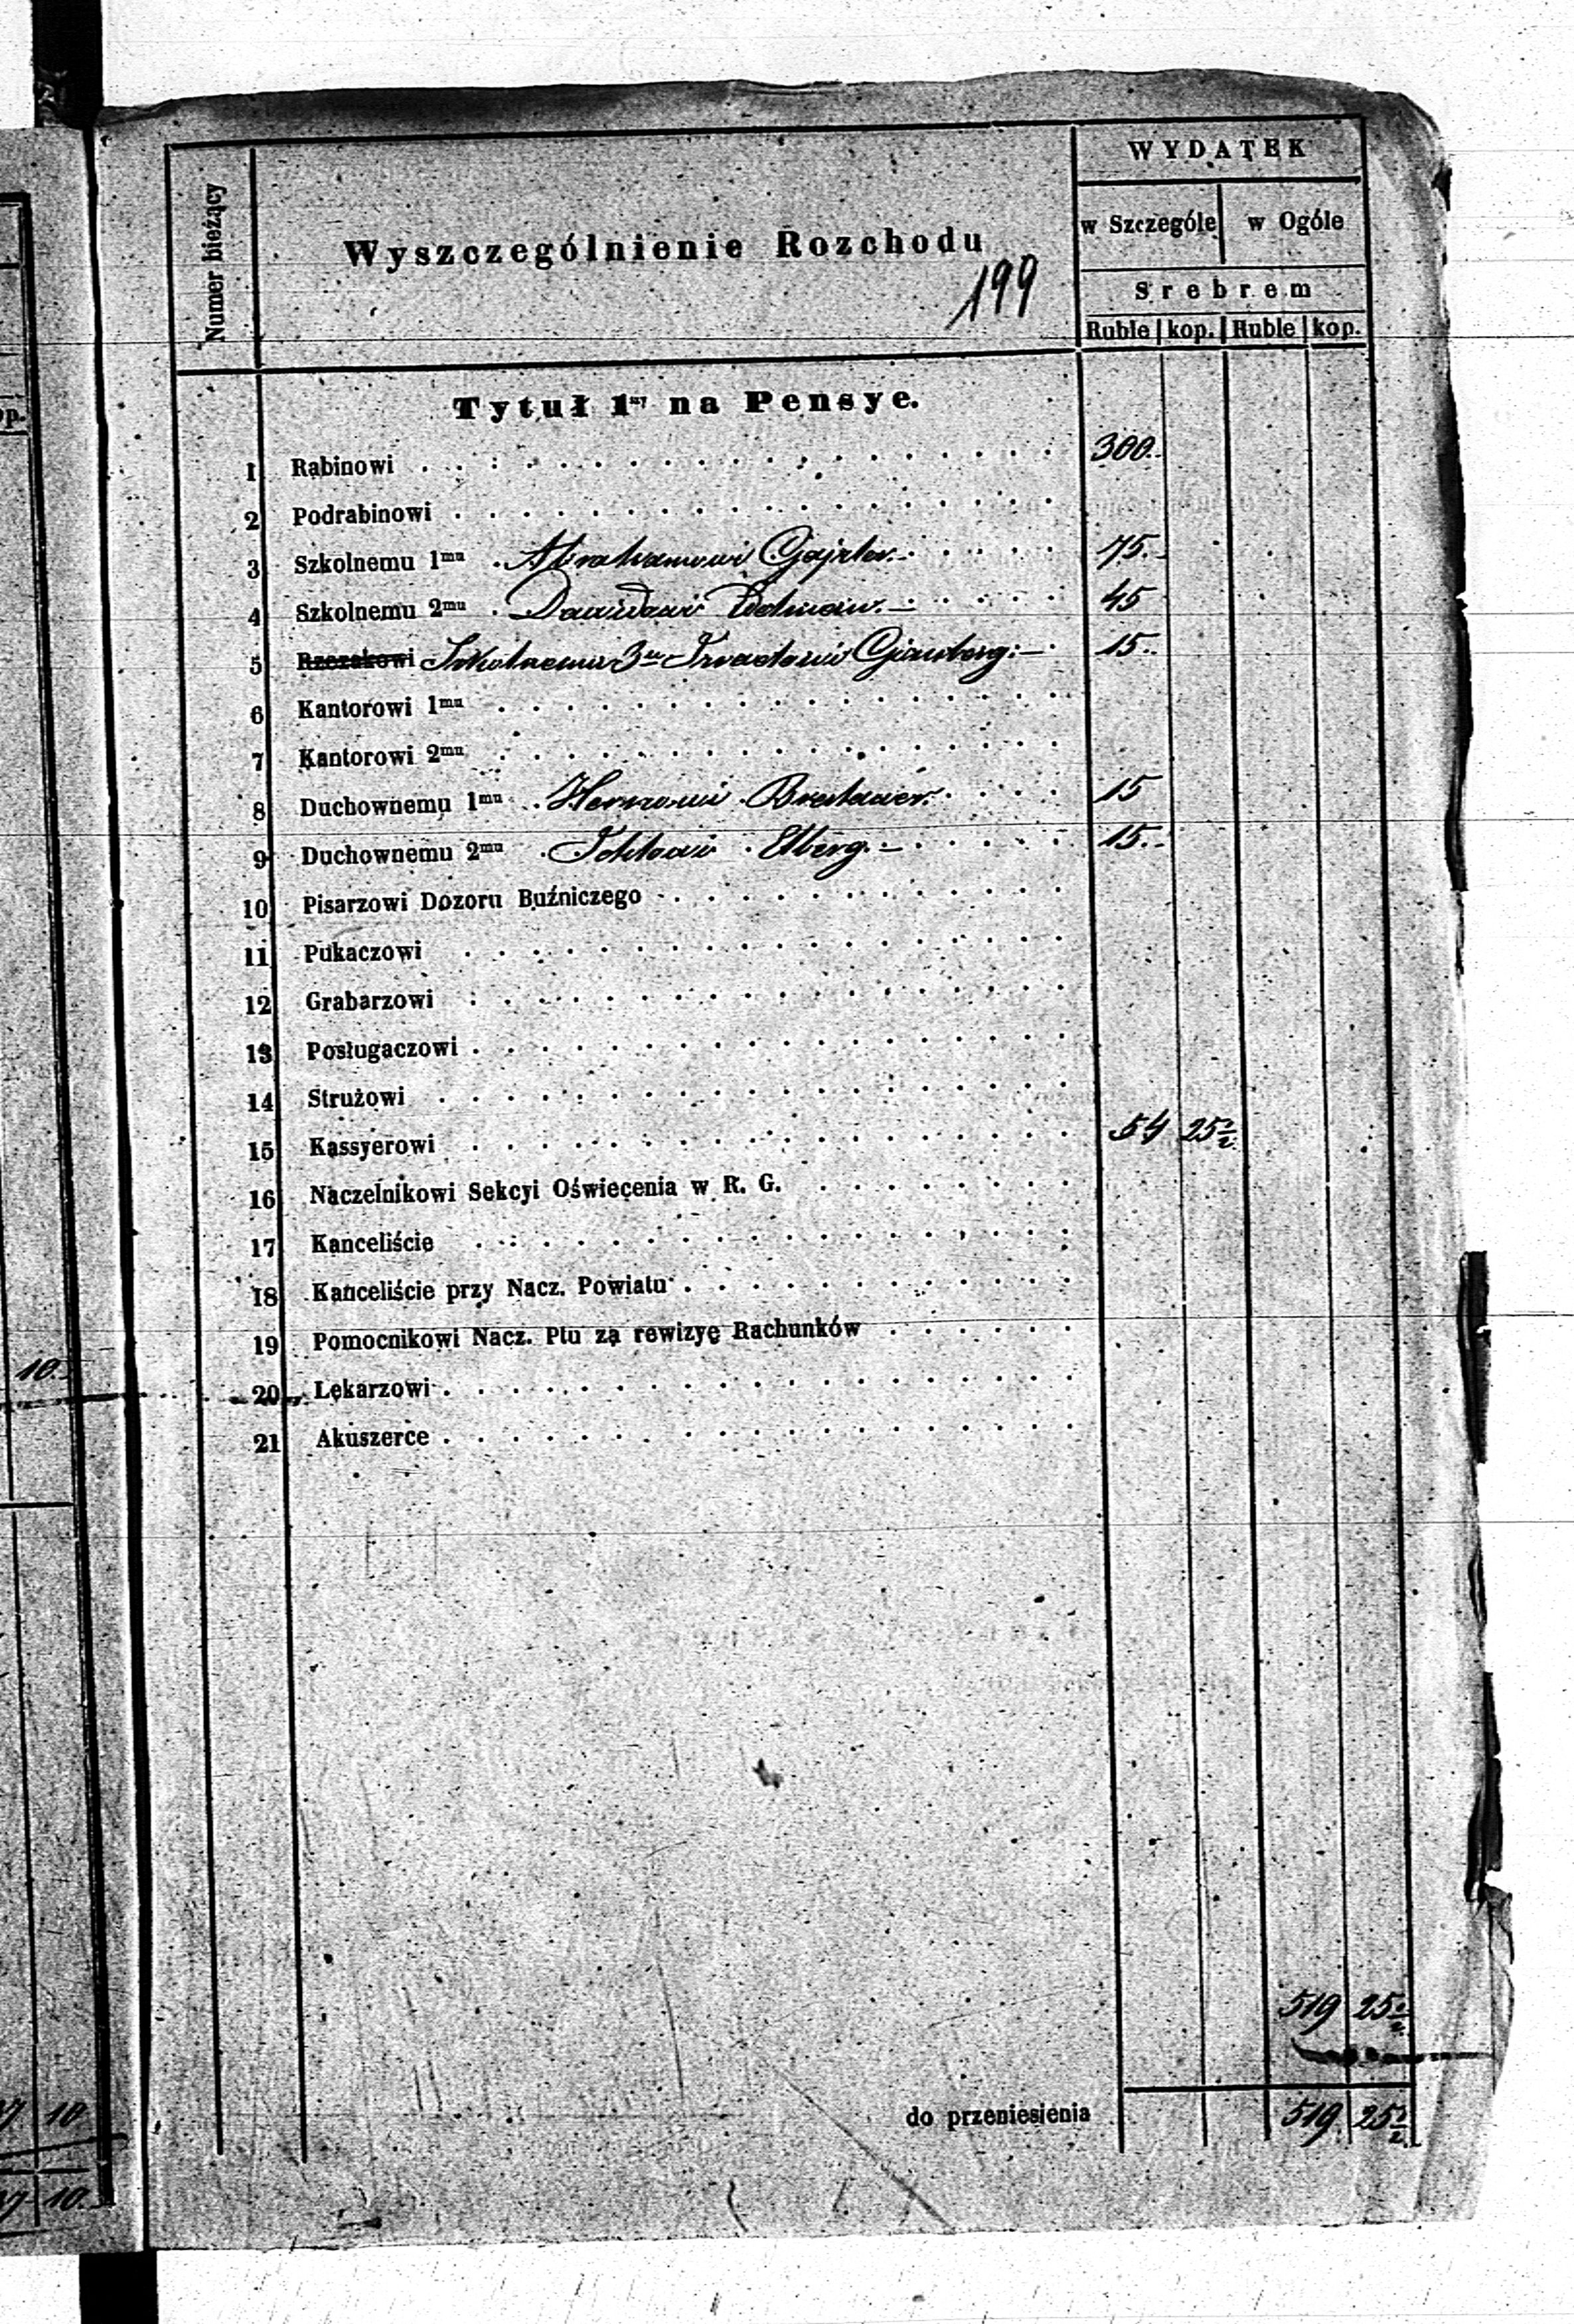 WYDATEK
Numer bieżący
Wyszczególnienie Rozchodu
w Szczególe w Ogóle
199
Srebrem
Ruble kop. Ruble kop.
Tytuł 1szy na Pensye.
1 Rabinowi 300.
2 Podrabinowi
3 Szkolnemu 1mu Abrahamowi Gajzler 75.
4 Szkolnemu 2mu Dawidowi 45
5 Rzezakowi Szkolnemu 3mu 15.
6 Kantorowi 1mu
7 Kantorowi 2mu
8 Duchownemu 1mu 15
9 Duchownemu 2mu Elberg 15.
10 Pisarzowi Dozoru Buźniczego
11 Pukaczowi
12 Grabarzowi
13 Posługaczowi
14 Strużowi
15 Kassyerowi 54 25½
16 Naczelnikowi Sekcyi Oświecenia w R. G.
17 Kanceliście
18 Kanceliście przy Nacz. Powiatu
19 Pomocnikowi Nacz. Ptu za rewizyę Rachunków
10.
20 Lekarzowi
21 Akuszerce
519 25½
do przeniesienia 519 25½
10
10